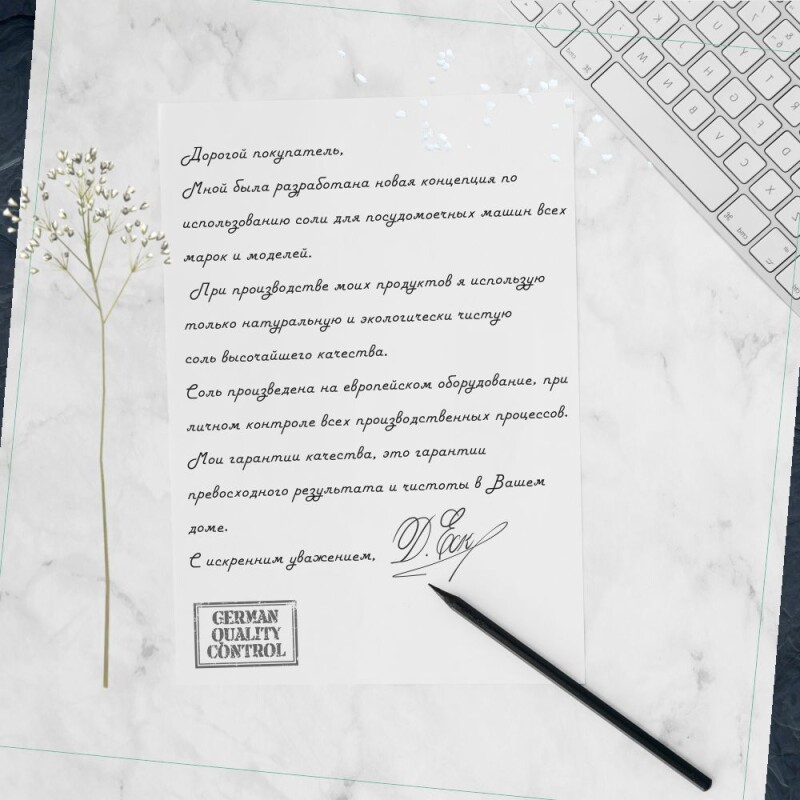 Дорогой покупатель,
Мной была разработана новая концепция по
использованию соли для посудомоечных машин всех
марок и моделей.
При производстве моих продуктов я использую
только натуральную и экологически чистую
соль высочайшего качества.
Соль произведена на европейском оборудование, при
личном контроле всех производственных процессов.
Мои гарантии качества, это гарантии
превосходного результата и чистоты в Вашем
доме.
С искренним уважением,
Д. Еск
GERMAN
QUALITY
CONTROL